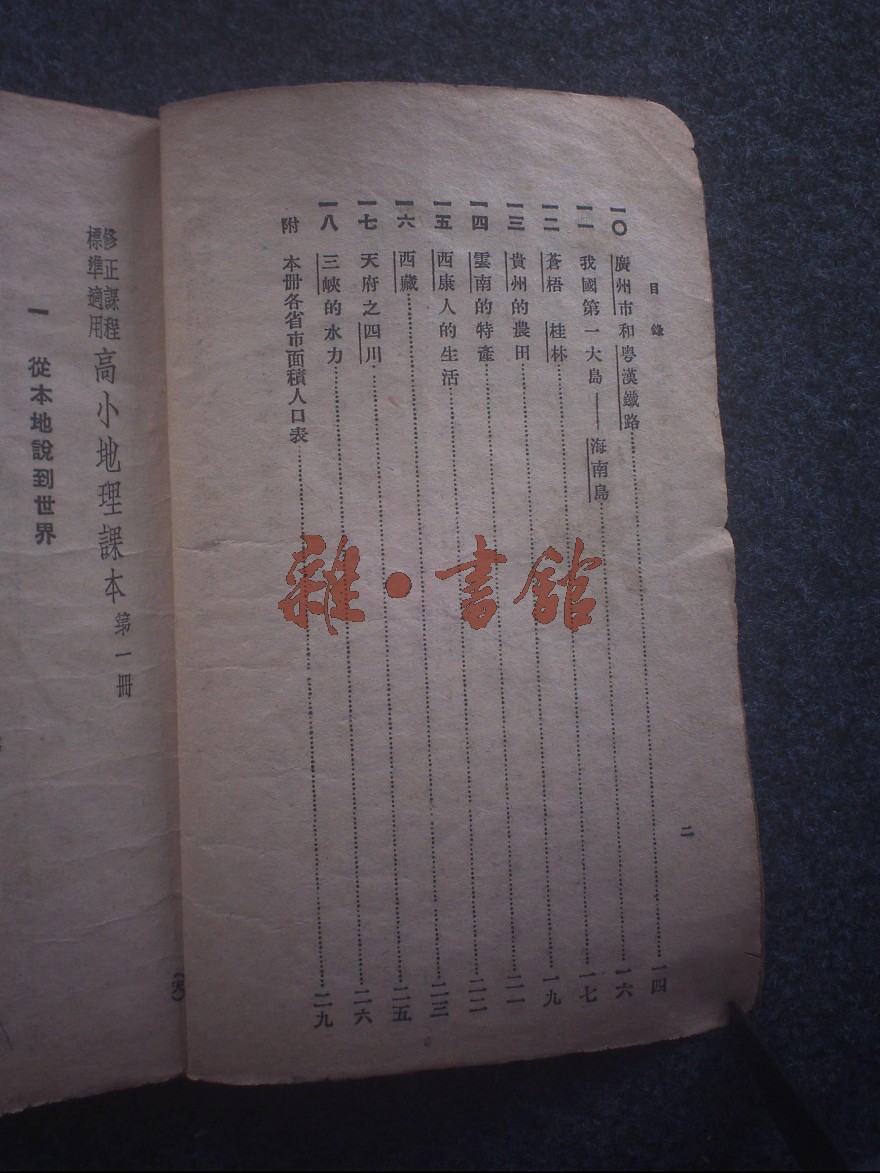 目錄
二
一〇 廣州市和粵漢鐵路……一四
一一 我國第一大島——海南島……一六
一二 蒼梧 桂林……一七
一三 貴州的農田……一九
一四 雲南的特產……二一
一五 西康人的生活……二二
一六 西藏……二三
一七 天府之四川……二五
一八 三峽的水力……二六
附 本冊各省市面積人口表……二九
修正課程
標準適用
高小地理課本 第一冊
一 從本地說到世界
雜·書館